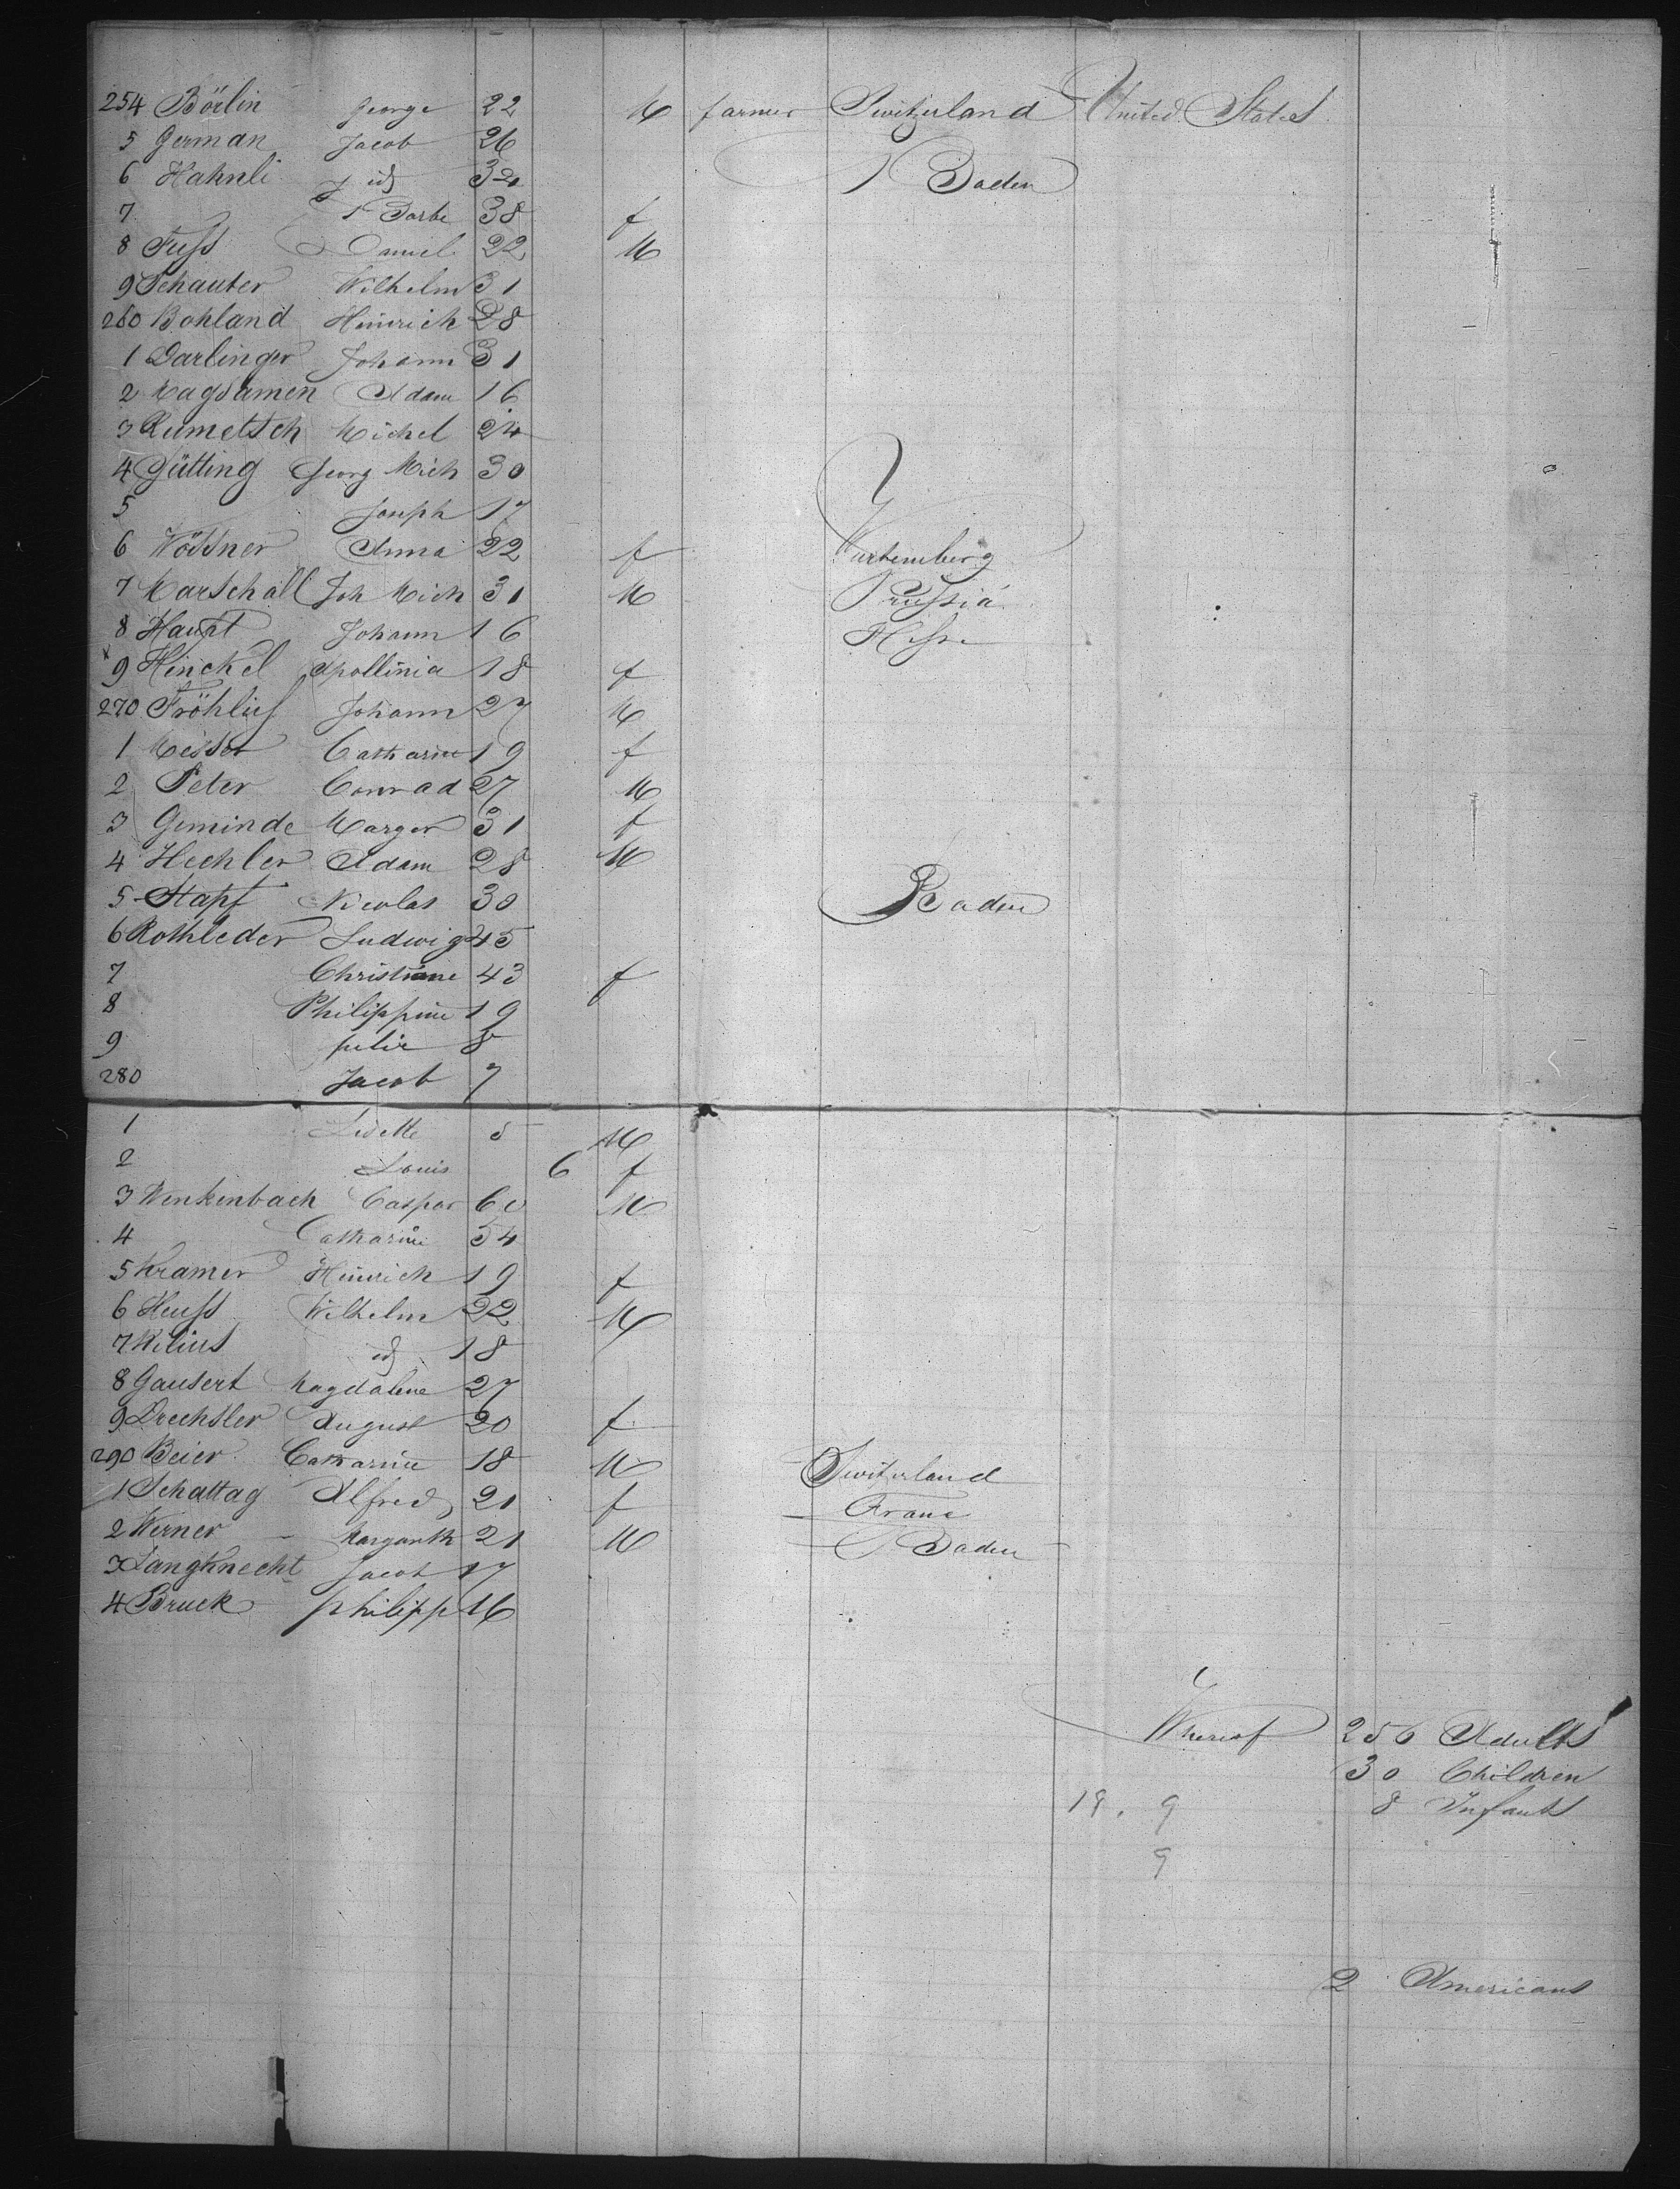 254 Börlin George 22 M farmer Switzerland United States
5 German Jacob 26
6 Hahnli id 32 Baden
7 Barbe 38 f
8 Fuss Daniel 22 M
9 Schauber Wilhelm 31
260 Bohland Heinrich 28
1 Darlinger Johann 31
2 Magsamen Adam 16
3 Rumetsch Michel 24
4 Gütting Georg Mich 30
5 Joseph 17
6 Wössner Anna 22 f Wurtemberg
7 Marschall Joh Mich 31 M Prussia
8 Haupt Johann 16 Hesse
9 Hinckel Apollinia 18 f
270 Fröhlich Johann 27 M
1 Messer Catharine 19 f
2 Peter Conrad 27 M
3 Geminde Margar 31 f
4 Hechler Adam 28 M
5 Stapf Nicolas 30 Baden
6 Rothleder Ludwig 45
7 Christiane 43 f
8 Philippine 19
9 Julie 8
280 Jacob 7
1 Lisette 5 M
2 Louis 6 f
3 Wenkenbach Caspar 60 M
4 Catharine 54
5 Kramer Heinrich 19 f
6 Heuss Wilhelm 22 M
7 Kilius id 18
8 Gausert Magdalene 27
9 Drechsler August 20 f
290 Beier Catharine 18 M Switzerland
1 Schattag Alfred 21 f France
2 Werner Margareth 21 M Baden
3 Langknecht Jacob 17
4 Bruck Philipp 16
Whereof 256 Adults
30 Children
19. 9 8 Infants
9
2 Americans